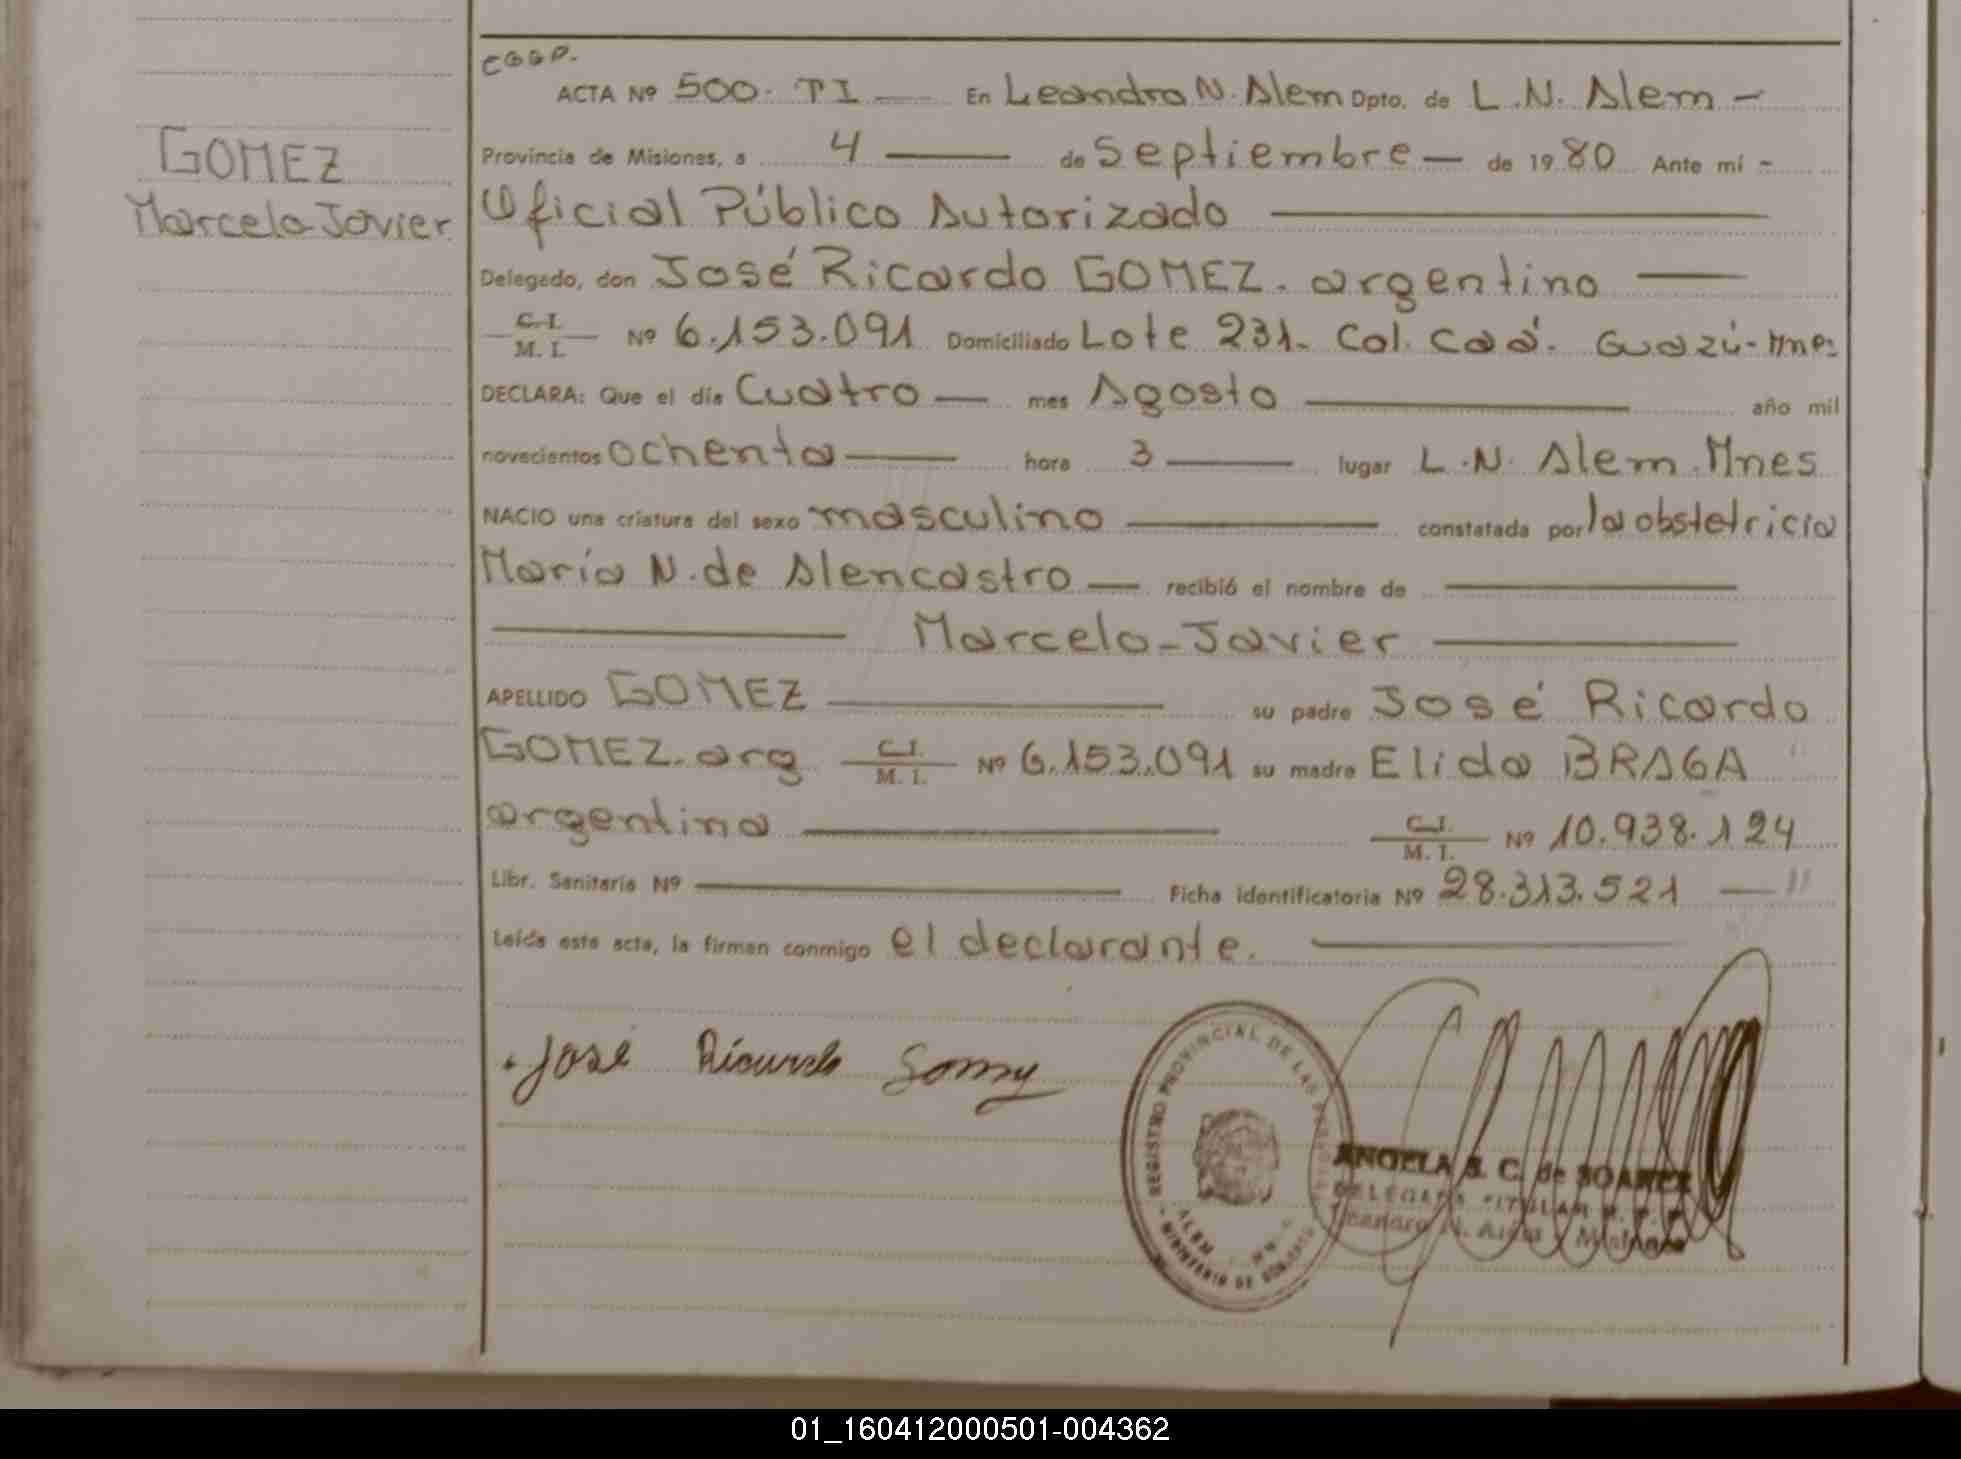 CGGP.
ACTA Nº 500. TI — En Leandro N. Alem Dpto. de L.N. Alem —
GOMEZ
Marcelo Javier
Provincia de Misiones, a 4 — de Septiembre — de 1980 Ante mí -
Oficial Público Autorizado —
Delegado, don José Ricardo GOMEZ. argentino —
C.I.
M. I. Nº 6.153.091 Domiciliado Lote 231. Col. Caá. Guazú - Mnes
DECLARA: Que el día Cuatro — mes Agosto — año mil
novecientos ochenta — hora 3 — lugar L.N. Alem. Mnes
NACIO una criatura del sexo masculino — constatada por la obstetricia
María N. de Alencastro — recibió el nombre de —
— Marcelo-Javier —
APELLIDO GOMEZ — su padre José Ricardo
GOMEZ. arg C.I.
M. I. Nº 6.153.091 su madre Elida BRAGA
argentina — C.I.
M. I. Nº 10.938.124
Libr. Sanitaria Nº — Ficha identificatoria Nº 28.313.521 — "
Leída esta acta, la firman conmigo el declarante. —
José Ricardo Gomez
REGISTRO PROVINCIAL DE LAS PERSONAS
ALEM - MNES
MINISTERIO DE GOBIERNO
ANGELA S. C. de SOAREZ
DELEGADA TITULAR R. P. P.
Leandro N. Alem - Misiones
01_160412000501-004362